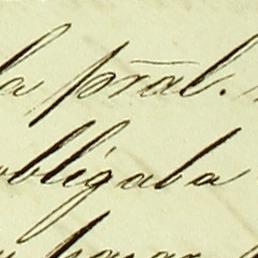 la pr̃al.
obligaba